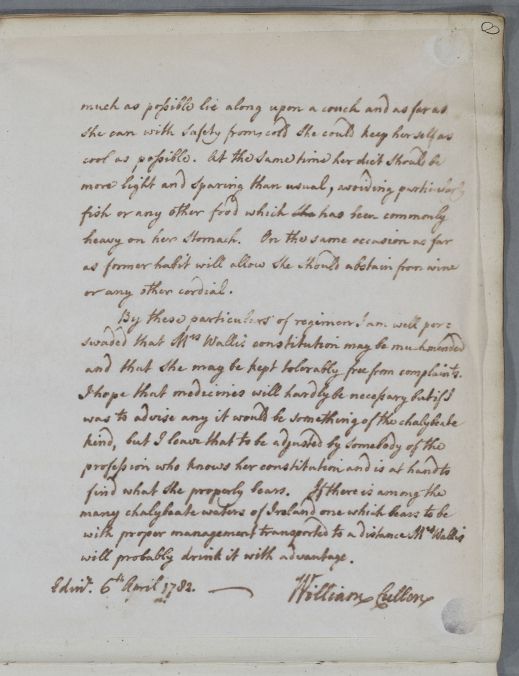 8
much as possible lie along upon a couch and as far as
she can with safety from cold she could keep herself as
cool as possible. At the same time her diet should be
more light and sparing than usual, avoiding particularly
fish or any other food which she has been commonly
heavy on her stomach. On the same occasion as far
as former habit will allow she should abstain from wine
or any other cordial.
By these particulars of regimen I am well per=
swaded that Mrs Wallis constitution may be much mended
and that she may be kept tolerably free from complaints.
I hope that medicines will hardly be necessary but if I
was to advise any it would be something of the chalybeate
kind, but I leave that to be adjusted by somebody of the
profession who knows her constitution and is at hand to
find what she properly bears. If there is among the
many chalybeate waters of Ireland one which bears to be
with proper management transported to a distance Mrs Wallis
will probably drink it with advantage.
Edinr. 6th April 1782. William Cullen